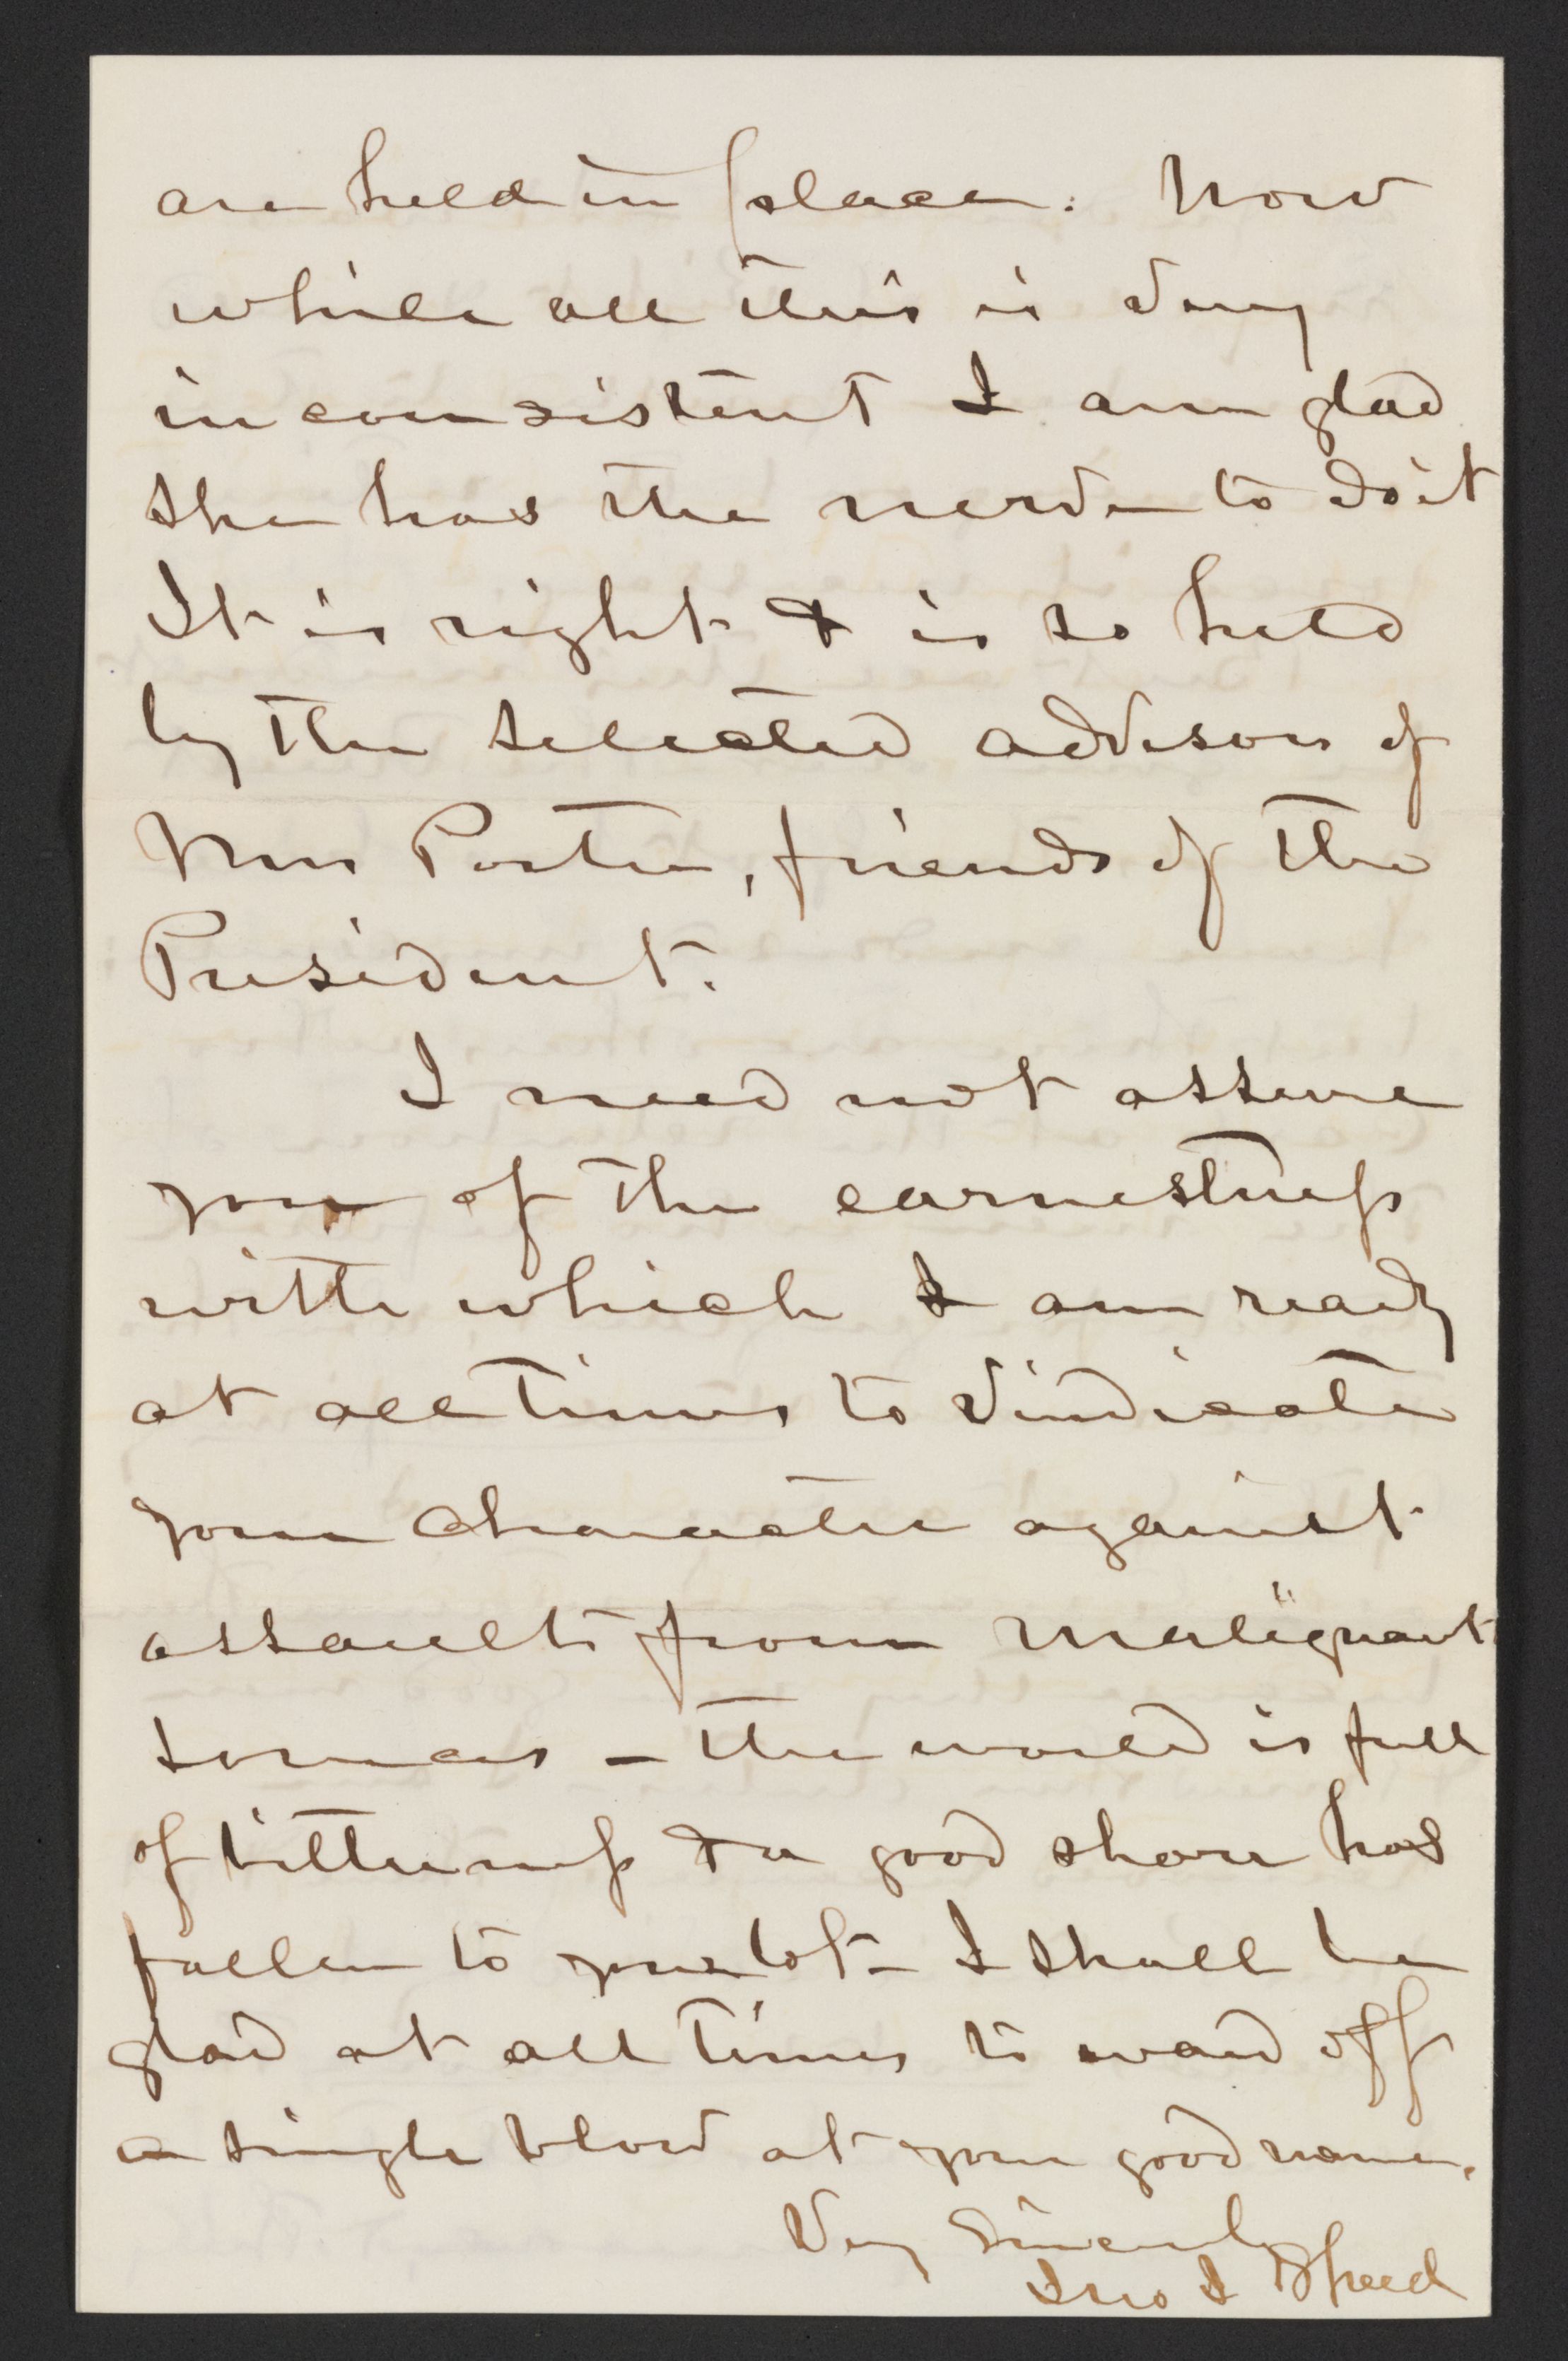 are held in place. Now
while all this is very
inconsistent I am glad
she has the nerve to do it
It is right & is so held
by the selected advisors of
Mrs Porter, friends of the
President.
I need not assure
you of the earnestness
with which I am ready
at all times to vindicate
your character against
assaults from malignant
sources - the world is full
of bitterness & a good share has
fallen to your lot - I shall be
glad at all times to ward off
a single blow at your good name.
Very Sincerely
Jno J Speed